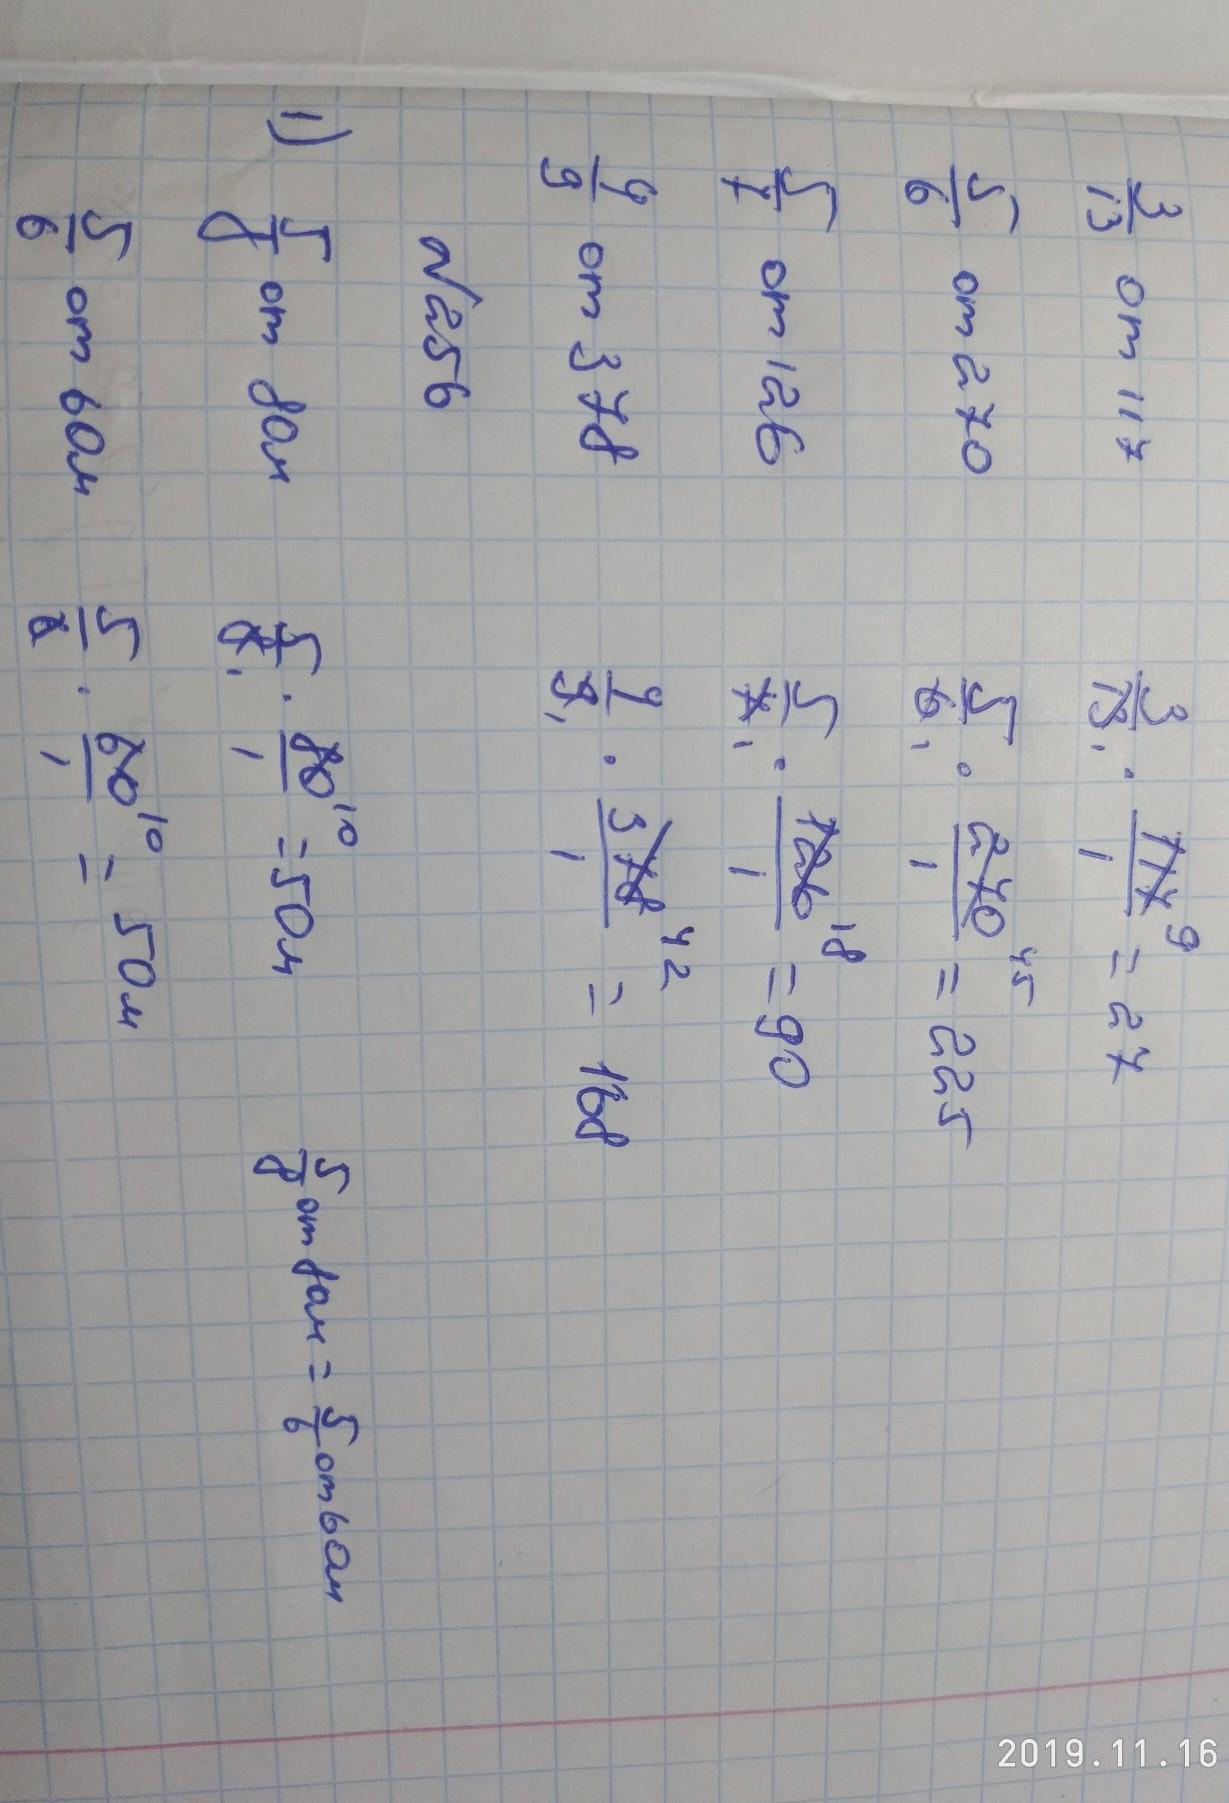 3/13 от 117 3/13 1 · 117 9/1 = 27
5/6 от 270 5/6 1 · 270 45/1 = 225
5/7 от 126 5/7 1 · 126 18/1 = 90
4/9 от 378 4/9 1 · 378 42/1 = 168
№256
1) 5/8 от 80м 5/8 1 · 80 10/1 = 50м 5/8 от 80м = 5/6 от 60м
5/6 от 60м 5/6 · 60 10/1 = 50м
2019.11.16